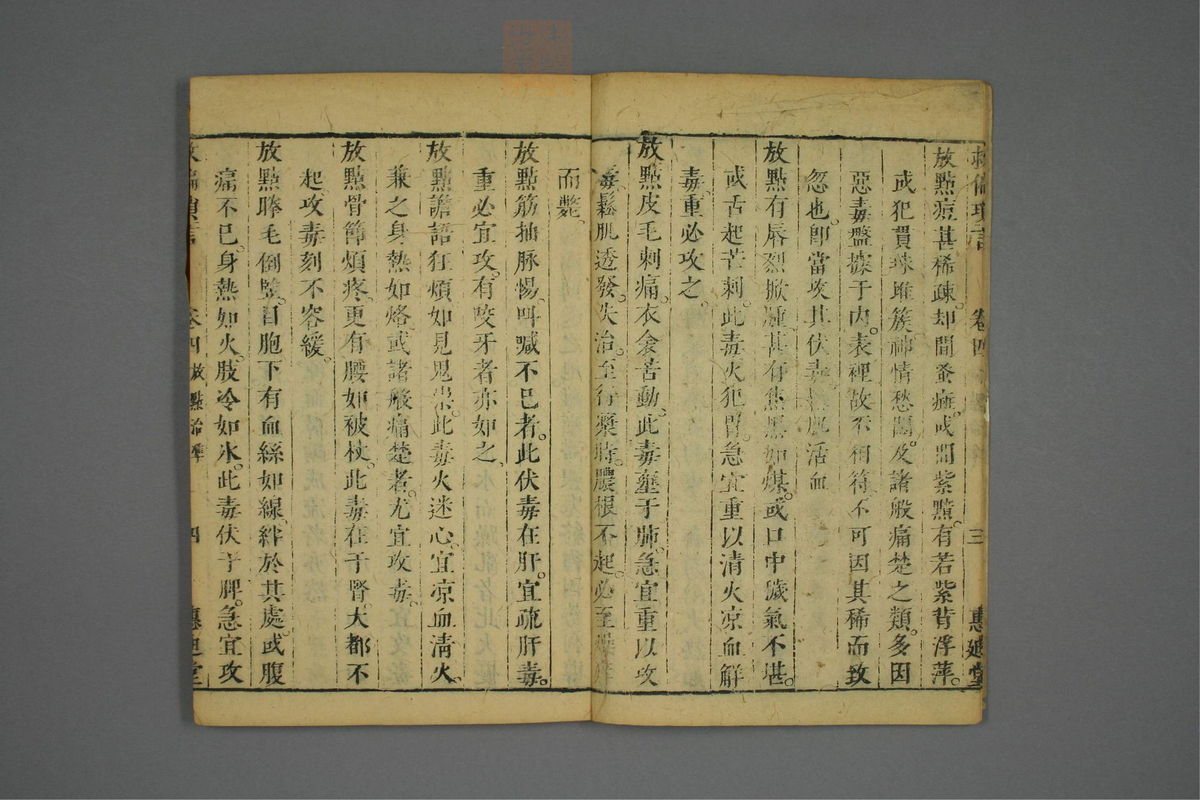 救偏瑣言 卷四 三 惠迪堂
放點痘甚稀疎。却間蚤㾴。或間紫黯。有若紫背浮萍。
或犯貫珠堆簇。神情愁悶。及諸般痛楚之類。多因
惡毒盤據于内。表裡故不相符。不可因其稀而致
忽也。卽當攻其伏毒。活血
放點有唇烈掀腫。甚有焦黑如煤。或口中臓氣不堪。
或舌起芒刺。此毒火犯胃。急宜重以清火凉血解
毒重必攻之。
放點皮毛刺痛。衣衾苦動。此毒壅于肺。急宜重以攻
毒鬆肌透發。失治。至行漿時。膿根不起。必至
而斃。
放點筋抽脉惕。叫喊不已者。此伏毒在肝。宜疏肝毒。
重必宜攻。有咬牙者亦如之。
放點譫語狂煩。如見鬼祟。此毒火迷心。宜凉血清火。
兼之身熱如烙。或諸般痛楚者。尤宜攻毒。
放點骨節煩疼。更有腰如被杖。此毒在于腎。大都不
起。攻毒刻不容緩。
放點睫毛倒豎。目胞下有血絲如線。絆於其處。或腹
痛不已。身熱如火。肢冷如冰。此毒伏于脾。急宜攻
救偏瑣言 卷四 放點 四 惠迪堂